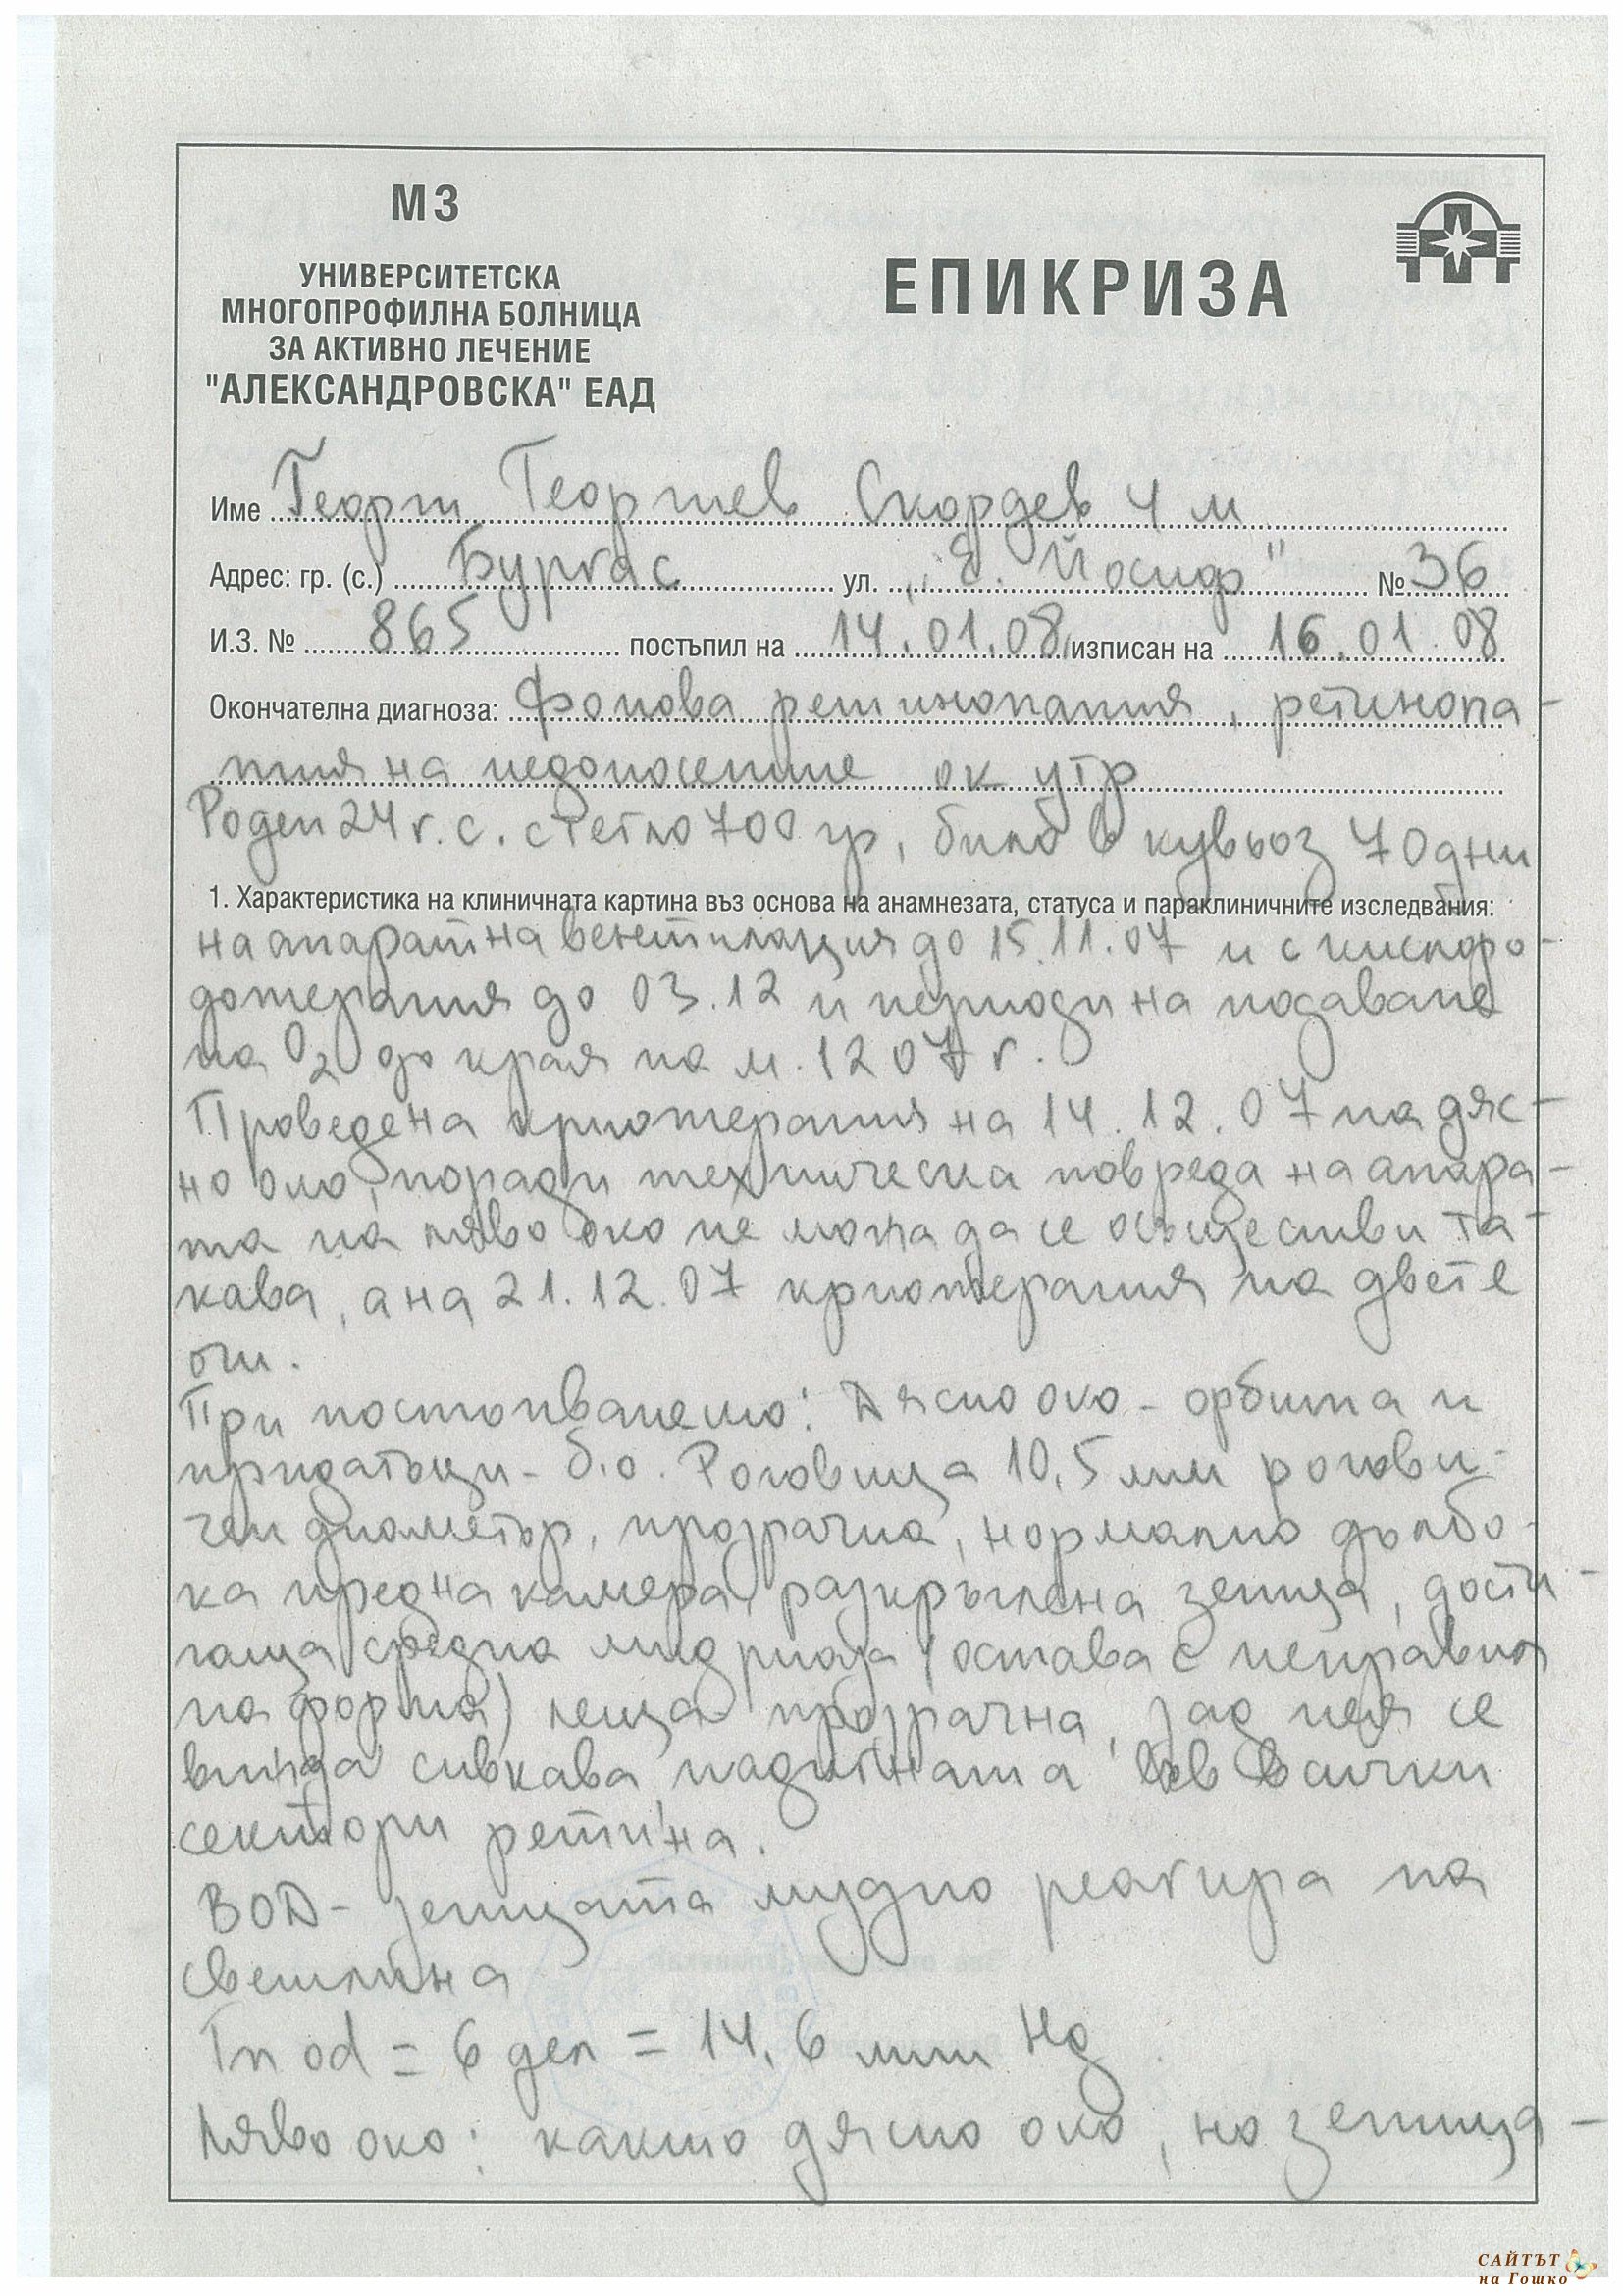 МЗ
УНИВЕРСИТЕТСКА
МНОГОПРОФИЛНА БОЛНИЦА
ЗА АКТИВНО ЛЕЧЕНИЕ
"АЛЕКСАНДРОВСКА" ЕАД
ЕПИКРИЗА
Име Георги Георгиев Скордев 4 м
Адрес: гр. (с.) Бургас ул. „Е. Йосиф" № 36
И.З. № 865 постъпил на 14.01.08 изписан на 16.01.08
Окончателна диагноза: Фонова ретинопатия, ретинопа-
тия на недоносените ок утр
Роден 24 г.с. с тегло 700 гр, било в кувьоз 70 дни
1. Характеристика на клиничната картина въз основа на анамнезата, статуса и параклиничните изследвания:
на апаратна вентилация до 15.11.07 и с кислоро-
дотерапия до 03.12 и периоди на подаване
на O2 до края на м. 12 07 г.
Проведена криотерапия на 14.12.07 на дяс-
но око, поради техническа повреда на апара-
та на ляво око не можа да се осъществи та-
кава, а на 21.12.07 криотерапия на двете
очи.
При постъпването: Дясно око - орбита и
придатъци - б.о. Роговица 10,5 мм рогови-
чен диаметър, прозрачна, нормално дълбо-
ка предна камера, разкръглена зеница, дости-
гаща средна мидриаза (остава с неправил
на форма) леща прозрачна, зад нея се
вижда сивкава, надигната във всички
сектори ретина.
ВОД - зеницата мудно реагира на
светлина
Tn od = 6 дел = 14,6 мм Hg
Ляво око: както дясно око, но зеница-
САЙТЪТ
на Гошко